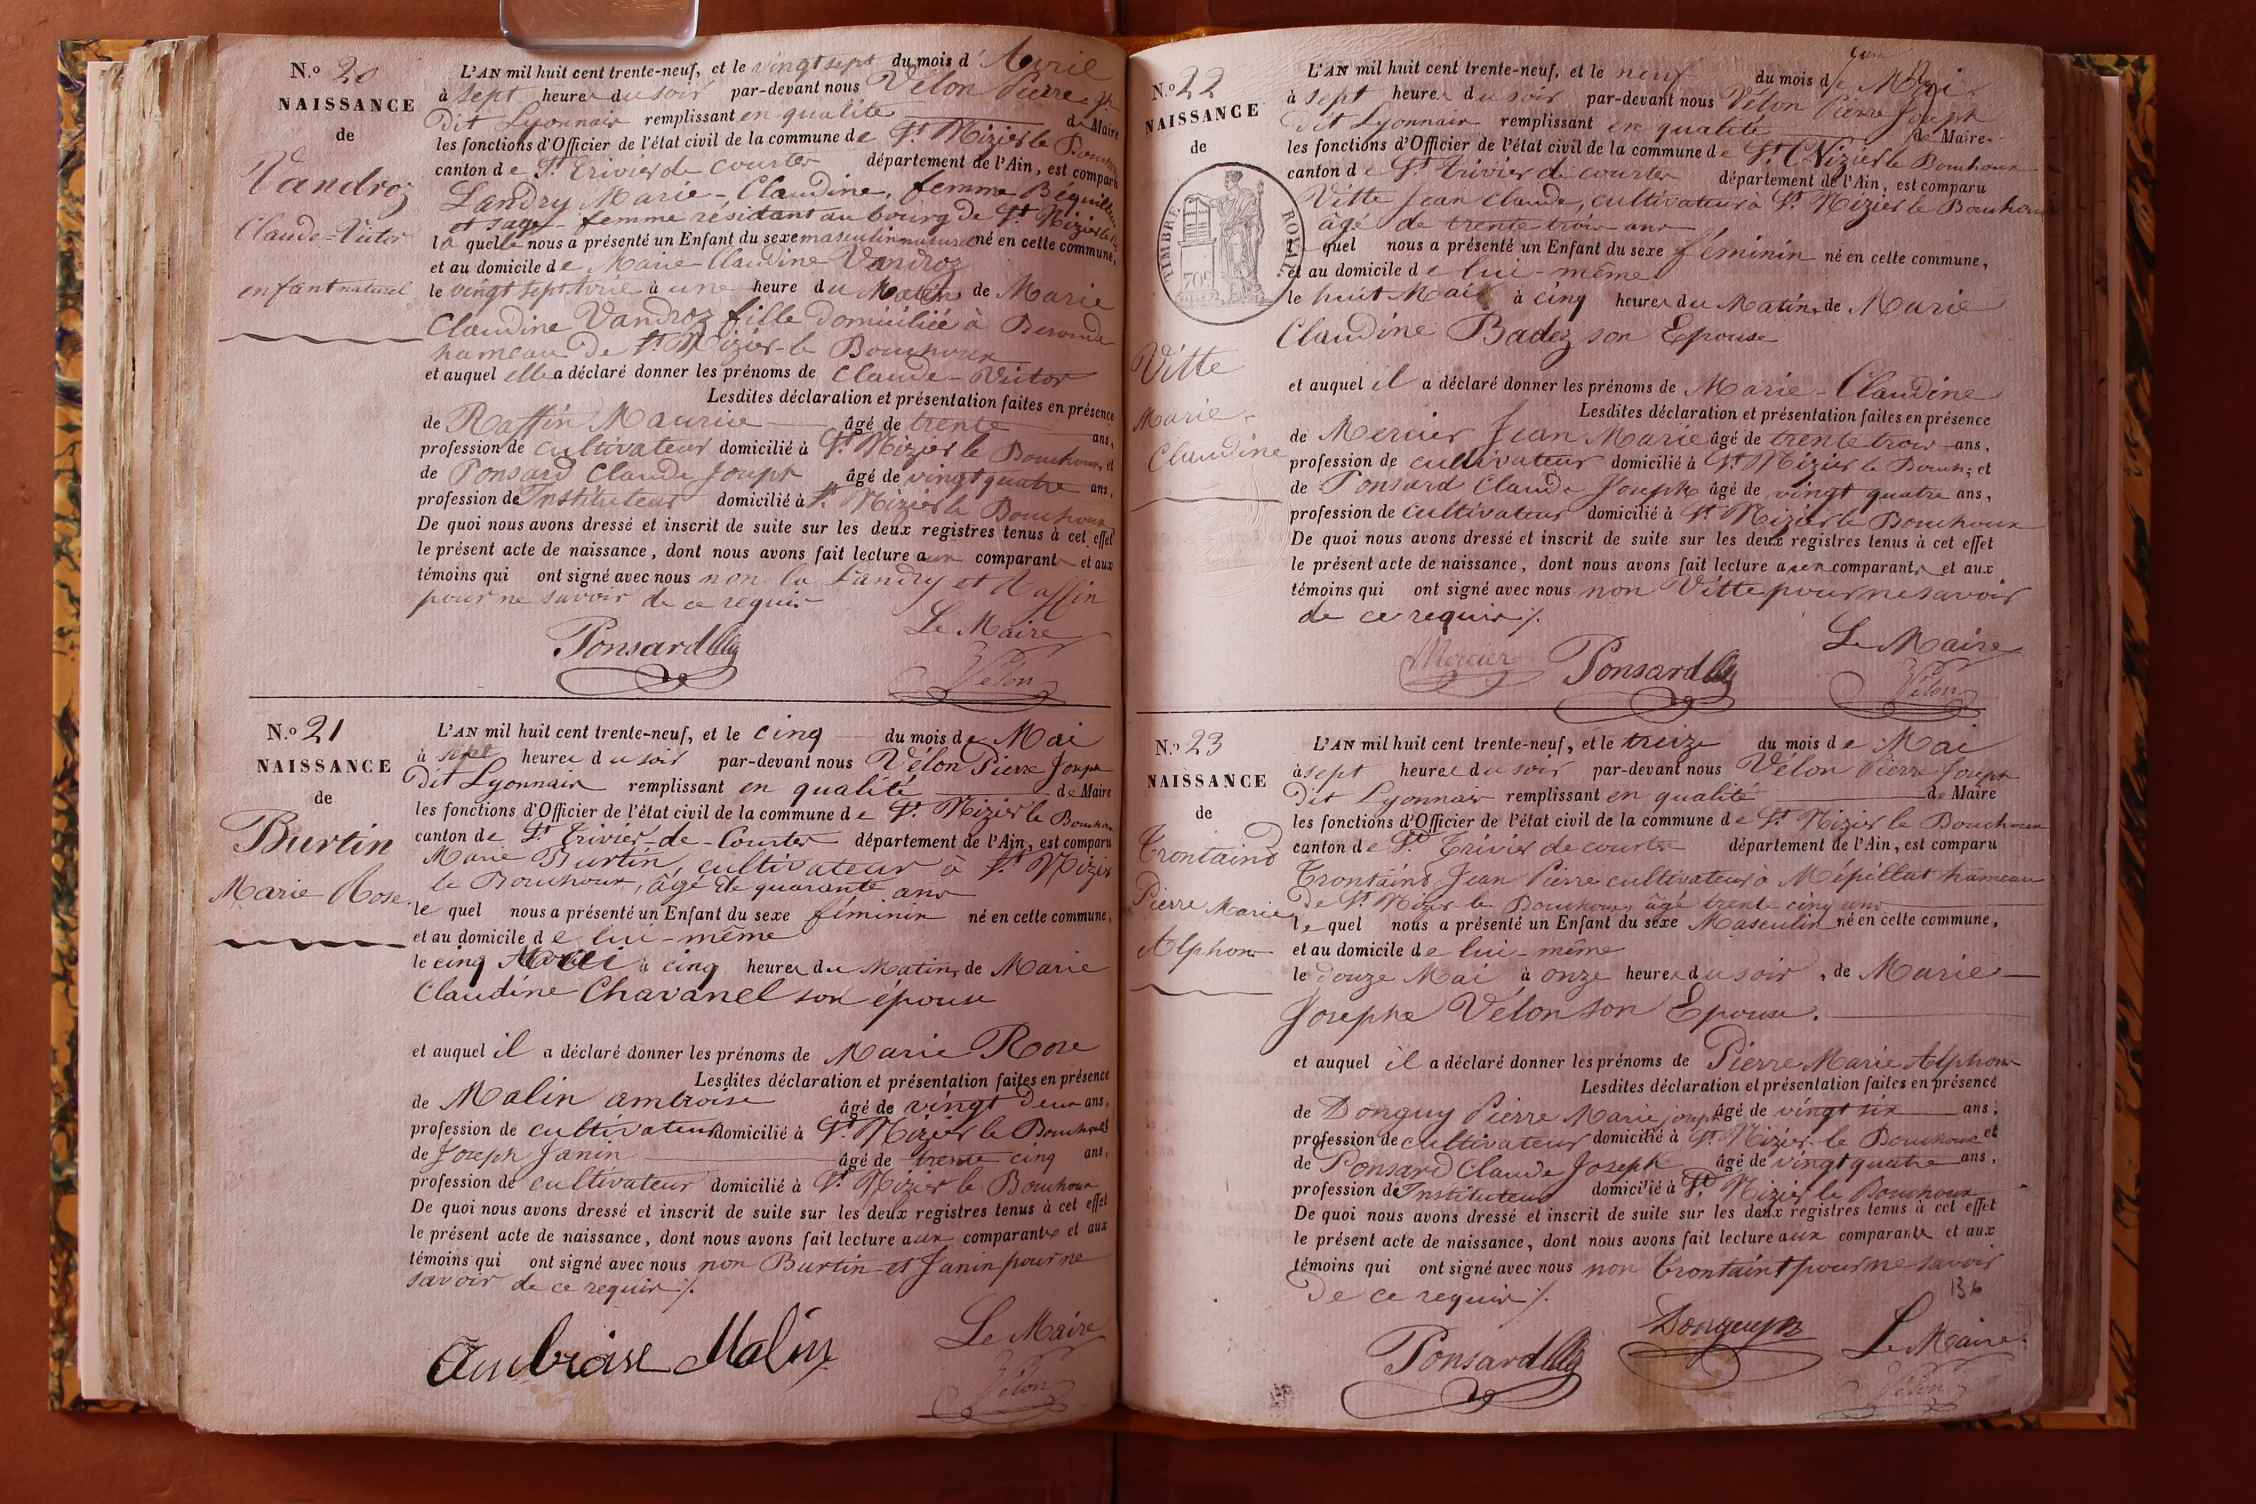 N.° 20
NAISSANCE
de
Vandroz
Claude-Victor
enfant naturel
L'AN mil huit cent trente-neuf, et le vingt sept du mois d'Avril
à sept heures du soir par-devant nous Vélon Pierre Jh
dit Lyonnais remplissant en qualité de Maire
les fonctions d'Officier de l'état civil de la commune de St Nizier le Bouchoux
canton de St Trivier de courtes département de l'Ain, est comparu
Landry Marie-Claudine, femme Béguillet
et sage-femme résidant au bourg de St Nizier le
la quelle nous a présenté un Enfant du sexe masculin naturel né en cette commune,
et au domicile de Marie Claudine Vandroz
le vingt sept avril à une heure du Matin de Marie
Claudine Vandroz fille domiciliée à Beronde
hameau de St Nizier-le Bouchoux
et auquel elle a déclaré donner les prénoms de Claude-Victor
Lesdites déclaration et présentation faites en présence
de Raffin Maurice âgé de trente ans,
profession de cultivateur domicilié à St Nizier le Bouchoux, et
de Ponsard Claude Joseph âgé de vingt quatre ans,
profession de Instituteur domicilié à St Nizier le Bouchoux
De quoi nous avons dressé et inscrit de suite sur les deux registres tenus à cet effet
le présent acte de naissance, dont nous avons fait lecture aux comparants et aux
témoins qui ont signé avec nous non la Landry et Raffin
pour ne savoir de ce requis
Le Maire
Ponsard
Vélon
N.° 21
NAISSANCE
de
Burtin
Marie Rose
L'AN mil huit cent trente-neuf, et le cinq du mois de Mai
à sept heures du soir par-devant nous Vélon Pierre Joseph
dit Lyonnais remplissant en qualité de Maire
les fonctions d'Officier de l'état civil de la commune de St Nizier le Bouchoux
canton de St Trivier-de-Courtes département de l'Ain, est comparu
Marie Burtin, cultivateur à St Nizier
le Bouchoux, âgé de quarante ans
le quel nous a présenté un Enfant du sexe féminin né en cette commune,
et au domicile de lui-même
le cinq Mai à cinq heures du Matin, de Marie
Claudine Chavanel son épouse
et auquel il a déclaré donner les prénoms de Marie Rose
Lesdites déclaration et présentation faites en présence
de Malin ambroise âgé de vingt deux ans,
profession de cultivateur domicilié à St Nizier le Bouchoux
de Joseph Janin âgé de trente cinq ans,
profession de cultivateur domicilié à St Nizier le Bouchoux
De quoi nous avons dressé et inscrit de suite sur les deux registres tenus à cet effet
le présent acte de naissance, dont nous avons fait lecture aux comparants et aux
témoins qui ont signé avec nous non Burtin et Janin pour ne
savoir de ce requis ./.
Le Maire
Ambroise Malin
Vélon
N.° 22
NAISSANCE
de
TIMBRE ROYAL
70c
Vitte
Marie-
Claudine
L'AN mil huit cent trente-neuf, et le neuf du mois de Mai
à sept heures du soir par-devant nous Vélon Pierre Joseph
dit Lyonnais remplissant en qualité de Maire
les fonctions d'Officier de l'état civil de la commune de St Nizier le Bouchoux
canton de St Trivier de courtes département de l'Ain, est comparu
Vitte Jean Claude, cultivateur à St Nizier le Bouchoux
âgé de trente trois ans
le quel nous a présenté un Enfant du sexe féminin né en cette commune,
et au domicile de lui-même
le huit Mai à cinq heures du Matin, de Marie
Claudine Badez son Epouse
et auquel il a déclaré donner les prénoms de Marie-Claudine
Lesdites déclaration et présentation faites en présence
de Mercier Jean Marie âgé de trente trois ans,
profession de cultivateur domicilié à St Nizier le Bouch; et
de Ponsard Claude Joseph âgé de vingt quatre ans,
profession de cultivateur domicilié à St Nizier le Bouchoux
De quoi nous avons dressé et inscrit de suite sur les deux registres tenus à cet effet
le présent acte de naissance, dont nous avons fait lecture aux comparants et aux
témoins qui ont signé avec nous non Vitte pour ne savoir
de ce requis ./.
Le Maire
Mercier Ponsard
Vélon
N.° 23
NAISSANCE
de
Trontaind
Pierre Marie
Alphonse
L'AN mil huit cent trente-neuf, et le treize du mois de Mai
à sept heures du soir par-devant nous Vélon Pierre Joseph
dit Lyonnais remplissant en qualité de Maire
les fonctions d'Officier de l'état civil de la commune de St Nizier le Bouchoux
canton de St Trivier de courtes département de l'Ain, est comparu
Trontaind Jean Pierre cultivateur à Mépillat hameau
de St Nizier le Bouchoux, âgé trente cinq ans
le quel nous a présenté un Enfant du sexe Masculin né en cette commune,
et au domicile de lui-même
le douze Mai à onze heures du soir, de Marie
Josephe Vélon son Epouse.
et auquel il a déclaré donner les prénoms de Pierre Marie Alphonse
Lesdites déclaration et présentation faites en présence
de Donguy Pierre Marie joseph âgé de vingt six ans,
profession de cultivateur domicilié à St Nizier-le Bouchoux et
de Ponsard Claude Joseph âgé de vingt quatre ans,
profession de Instituteur domicilié à St Nizier le Bouchoux
De quoi nous avons dressé et inscrit de suite sur les deux registres tenus à cet effet
le présent acte de naissance, dont nous avons fait lecture aux comparants et aux
témoins qui ont signé avec nous non Trontaint pour ne savoir
de ce requis ./.
136
Donguy
Le Maire
Ponsard
Vélon